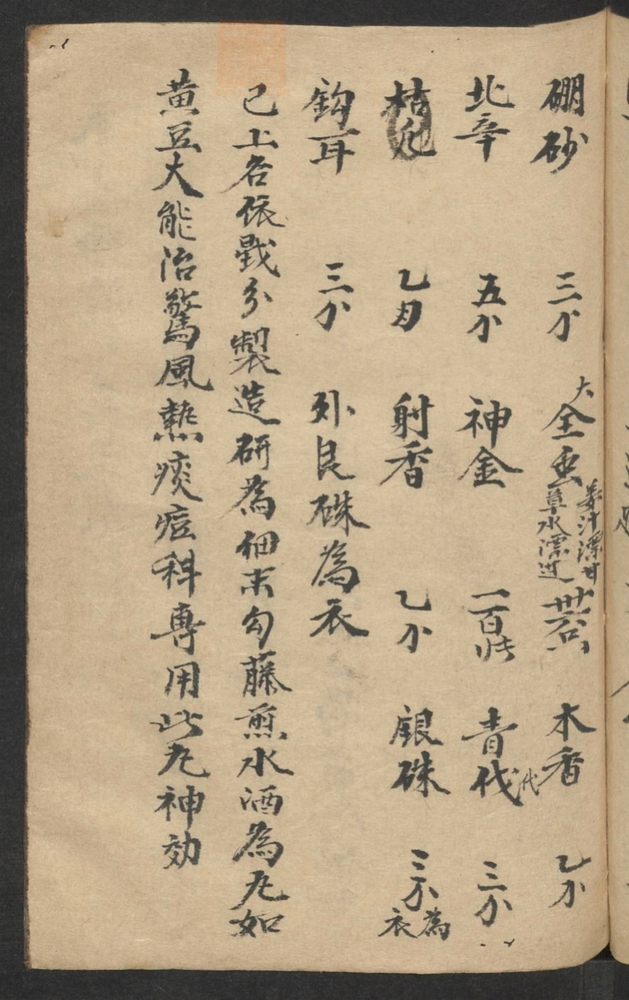 硼砂 三分 大全虫 姜汁漂甘草水漂过 廿谷 木香 乙分
北辛 五分 神金 一百 青代 代 三分
枯凡 乙 射香 乙分 銀硃 三分 為衣
鈎耳 三分 外良硃為衣
已上各依戥分製造研為細末勾藤煎水酒為丸如
黄豆大能治驚風熱痰痘科專用此丸神効